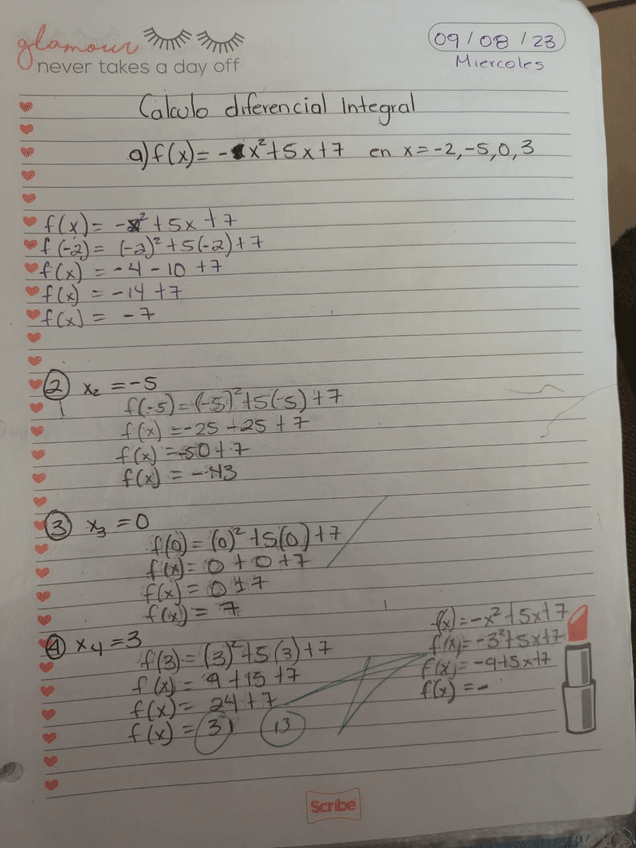 glamour
never takes a day off
09/08/23
Miercoles
Calculo diferencial Integral
a) f(x)= -x²+5x+7 en x=-2,-5,0,3
f(x)= -x²+5x+7
f(-2)= (-2)²+5(-2)+7
f(x) = -4-10+7
f(x) = -14+7
f(x) = -7
② x₂ =-5
f(-5)=(-5)²+5(-5)+7
f(x) =-25+25+7
f(x) =-50+7
f(x) = -43
③ x₃ =0
f(0)=(0)²+5(0)+7
f(x)= 0+0+7
f(x)= 0+7
f(x)= 7
④ x₄=3
f(3)=(3)²+5(3)+7
f(x)= 9+15+7
f(x)= 24+7
f(x)= 31 13
f(x)=-x²+5x+7
f(x)=-3²+5x+7
f(x)=-9+5x+7
f(x)=-
Scribe